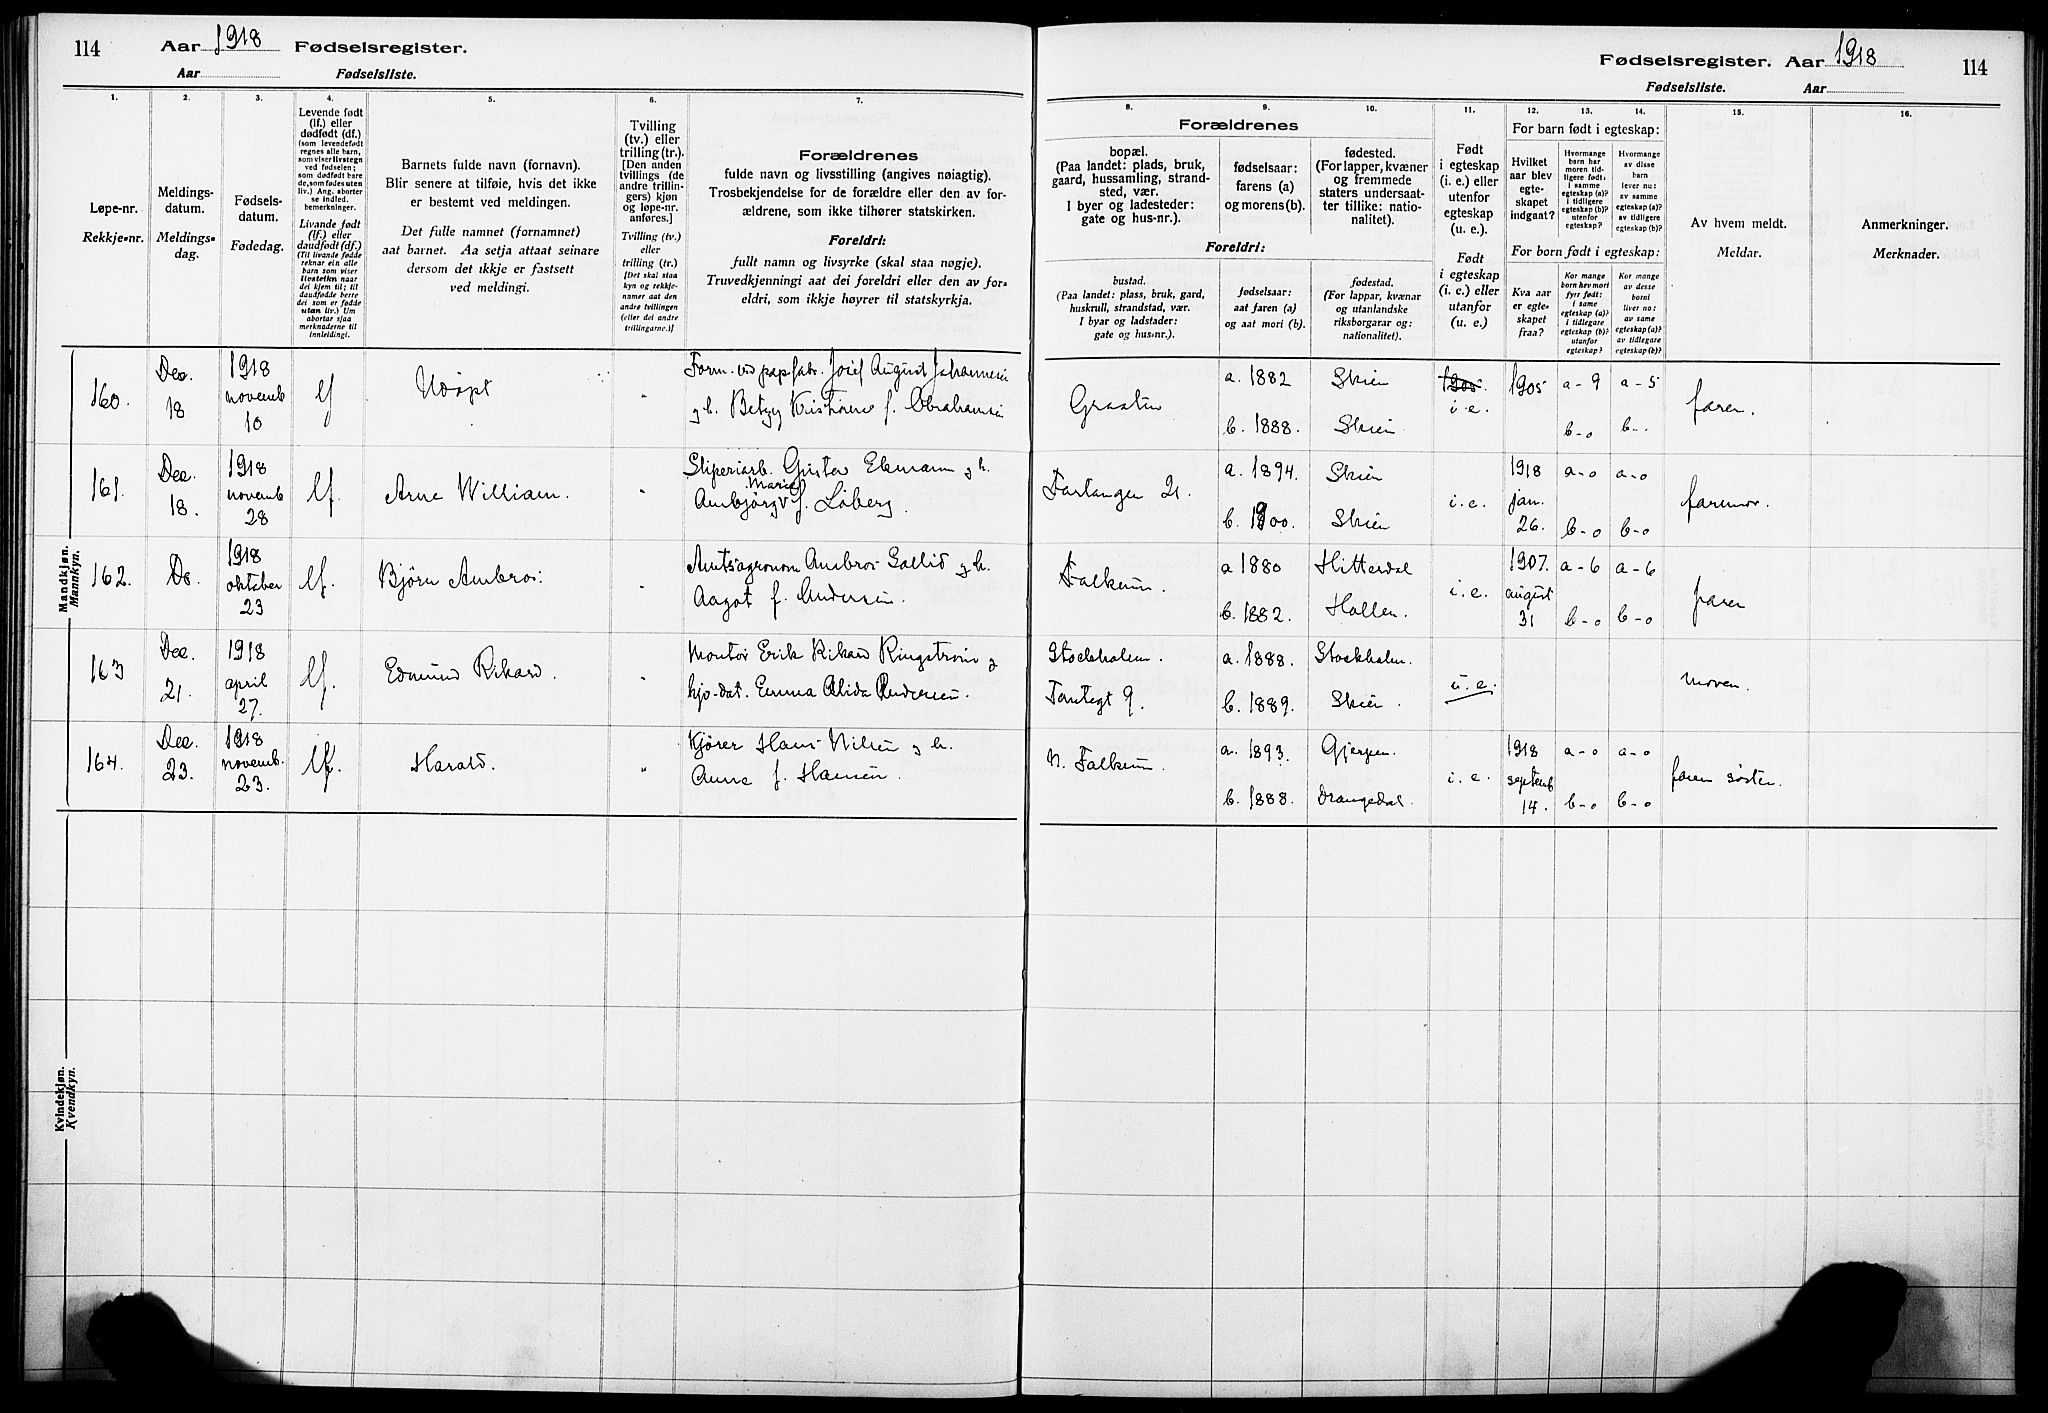 114
Aar 1918 Fødselsregister.
Aar Fødselsliste.
1.
Løpe-nr.
Rekkje-nr.
2.
Meldings-
datum.
Meldings-
dag.
3.
Fødsels-
datum.
Fødedag.
4.
Levende født
(lf.) eller
dødfødt (df.)
(som levendefødt
regnes alle barn,
som viser livstegn
ved fødselen;
som dødfødt bare
de, som fødes uten
liv.) Ang. aborter
se indled.
bemerkninger.
Livande født
(lf.) eller
daudfødt (df.)
(Til livande fødde
reknar ein alle
barn som viser
livsteikn naar
dei kjem til; til
daudfødde berre
dei som er fødde
utan liv.) Um
abortar sjaa
merknaderne til
innleidingi.
5.
Barnets fulde navn (fornavn).
Blir senere at tilføie, hvis det ikke
er bestemt ved meldingen.
Det fulle namnet (fornamnet)
aat barnet. Aa setja attaat seinare
dersom det ikkje er fastsett
ved meldingi.
6.
Tvilling
(tv.) eller
trilling (tr.).
[Den anden
tvillings (de
andre trillin-
gers) kjøn
og løpe-nr.
anføres.]
Tvilling (tv.)
eller
trilling (tr.)
[Det skal staa
kyn og rekkje-
namer aat den
andre tvillingen
(eller dei andre
trillingarne.)]
7.
Forældrenes
fulde navn og livsstilling (angives nøiagtig).
Trosbekjendelse for de forældre eller den av for-
ældrene, som ikke tilhører statskirken.
Foreldri:
fullt namn og livsyrke (skal staa nøgje).
Truvedkjenningi aat dei foreldri eller den av for-
eldri, som ikkje høyrer til statskyrkja.
Mandkjøn.
Mannkyn.
160.
Dec.
18
1918
novemb
10
lf
Udøpt
"
Form. ved papfabr. Josef August Johannesen
g h. Betzy Kristine f. Abrahamsen
161.
Dec.
18.
1918
novemb
28
lf.
Arne William.
"
Sliperiarb. Gustav Ekmann g h.
Marie
Ambjørg f. Løberg.
162.
Do.
1918
oktober
23
lf.
Bjørn Ambros.
"
Amtsagronom Ambros Sollid g h.
Aagot f. Andersen.
163
Dec.
21.
1918
april
27.
lf.
Edmund Rikard.
"
Montør Erik Rikard Ringstrøm g
hjo-dat. Emma Alida Andersen.
164.
Dec.
23.
1918
novemb.
23.
lf.
Harald.
"
Kjører Hans Nilsen g h.
Anne f. Hansen.
Kvindekjøn.
Kvendkyn.
Fødselsregister. Aar 1918
114
Fødselsliste. Aar
8.
Forældrenes
bopæl.
(Paa landet: plads, bruk,
gaard, hussamling, strand-
sted, vær.
I byer og ladesteder:
gate og hus-nr.).
Foreldri:
bustad.
(Paa landet: plass, bruk, gard,
huskrull, strandstad, vær.
I byar og ladstader:
gate og hus-nr.).
9.
fødselsaar:
farens (a)
og morens (b).
fødselsaar:
aat faren (a)
og aat mori (b).
10.
fødested.
(For lapper, kvæner
og fremmede
staters undersaat-
ter tillike: natio-
nalitet).
fødestad.
(For lappar, kvænar
og utanlandske
riksborgarar og:
nationalitet).
11.
Født
i egteskap
(i. e.) eller
utenfor
egteskap
(u. e.).
Født
i egteskap
(i. e.) eller
utanfor
(u. e.)
12.
For barn født i egteskap:
Hvilket
aar blev
egte-
skapet
indgaat?
For born født i egteskap:
Kva aar
er egte-
skapet
fraa?
13.
Hvormange
barn har
moren tid-
ligere født:
i samme
egteskap (a)?
i tidligere
egteskap (b)?
utenfor
egteskap?
Kor mange
born hev mori
fyrr født:
i same
egteskap (a)?
i tidlegare
egteskap (b)?
utanfor
egteskap?
14.
Hvormange
av disse
barn
lever nu:
av samme
egteskap (a)?
av tidligere
egteskap (b)?
Kor mange
av desse
borni
liver no:
av same
egteskap (a)?
av tidlegare
egteskap (b)?
15.
Av hvem meldt.
Meldar.
16.
Anmerkninger.
Merknader.
Graaten
a. 1882
b. 1888.
Skien
Skien
1905.
i. e.
1905
a - 9
b - 0
a - 5
b - .
faren.
21.
a. 1894.
b. 1900.
Skien
Skien
i. e.
1918
jan.
26.
a - 0
b - 0
a - 0
b - 0
farmor.
Falkum.
a 1880
b. 1882.
Hitterdal
Hollen.
i. e.
1907.
august
31
a - 6
b - 0
a - 6
b - 0
faren
Stockholm.
9.
a. 1888.
b. 1889.
Stockholm.
Skien.
u. e.
moren.
N. Falkum.
a. 1893.
b. 1888.
Gjerpen.
Drangedal.
i. e.
1918
septemb
14.
a - 0
b - 0
a - 0
b - 0
faren søster.